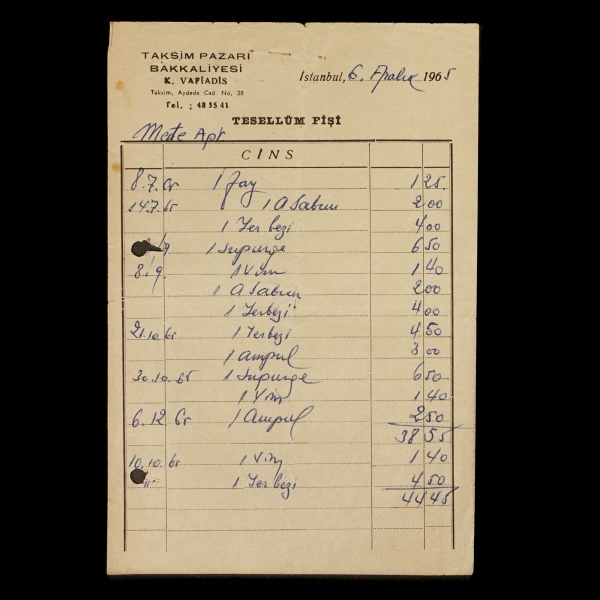 TAKSİM PAZARI
BAKKALİYESİ
K. VAFİADİS
Taksim, Aydede Cad No, 28
Tel. : 48 35 41
İstanbul, 6. Aralık 1965
TESELLÜM FİŞİ
Mete Apt
CİNS
8.7.65 1 Fay 1 25
14.7.65 1 A Sabun 2 00
1 Yer bezi 4 00
1 Supurge 6 50
8.9. 1 Vim 1 40
1 A Sabun 2 00
1 Yerbezi 4 00
21.10.65 1 Yerbezi 4 50
1 Ampul 3 00
30.10.65 1 Supurge 6 50
1 Vim 1 40
6.12.65 1 Ampul 2 50
38 55
10.10.65 1 Vim 1 40
" 1 Yer bezi 4 50
44 45